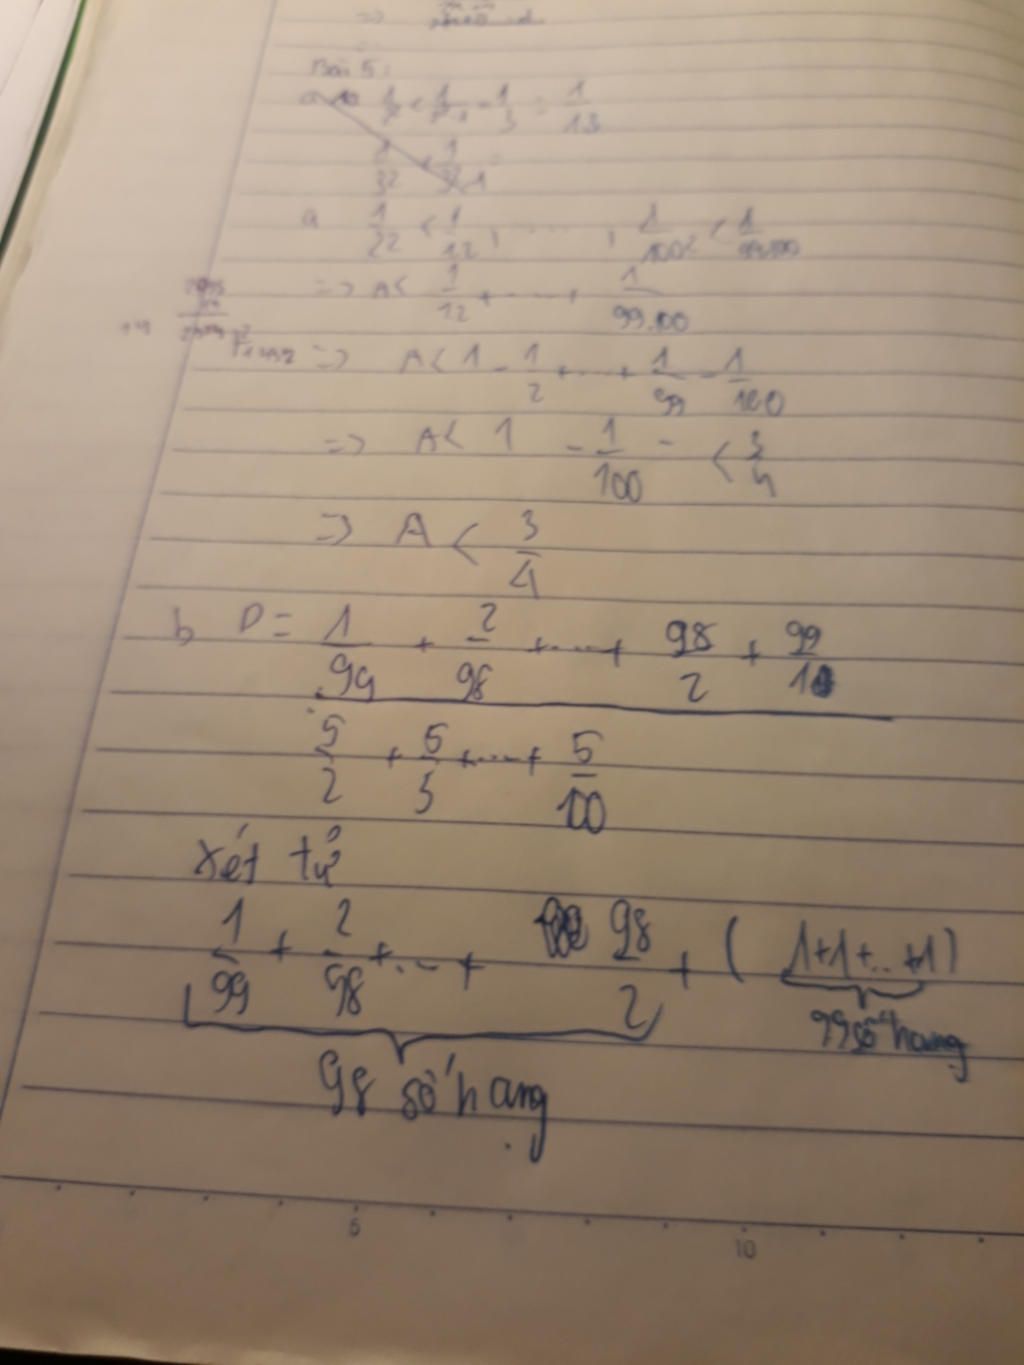 Bài 5:
1/3 = 1/13
a 1/22 < 1/12, ....., 1/100² < 1/99.100
=> A < 1/12 + ..... + 1/99.100
=> A < 1 - 1/2 + .... + 1/99 - 1/100
=> A < 1 - 1/100 < 3/4
=> A < 3/4
b D = 1/99 + 2/98 + ..... + 98/2 + 99/1
5/2 + 5/3 + ..... + 5/100
Xét tử
1/99 + 2/98 + ... + 98/2 + (1+1+..+1)
99 số hang
98 số hang
5 10